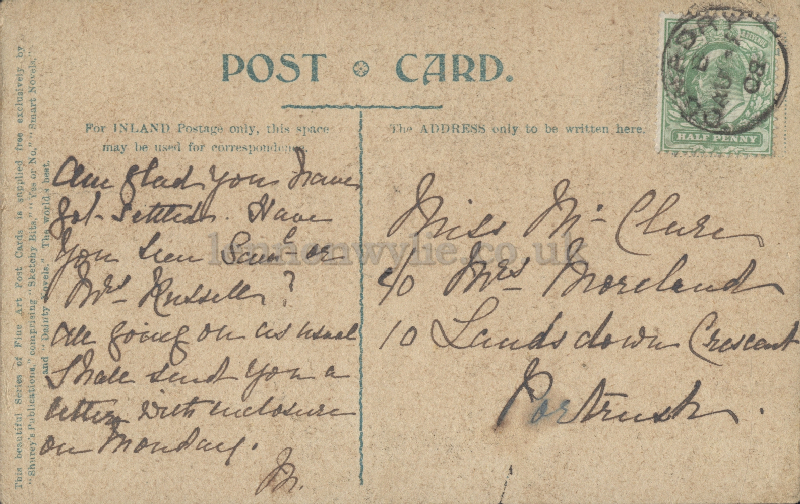 POST CARD.
For INLAND Postage only, this space
may be used for correspondence.
The ADDRESS only to be written here.
HALF PENNY
AU
08
Am glad you have
got settled. Have
you seen Saml or
Mrs Russell?
All going on as usual
Shall send you a
letter with inclosure
on Monday.
M.
Miss McClure
c/o Mrs Moreland
10 Landsdown Crescent
Portrush.
This beautiful Series of Fine Art Post Cards is supplied free exclusively by
"Shurey's Publications," comprising "Sketchy Bits," "Yes or No," "Smart Novels,"
and "Dainty Novels." The world's best.
lennonwylie.co.uk